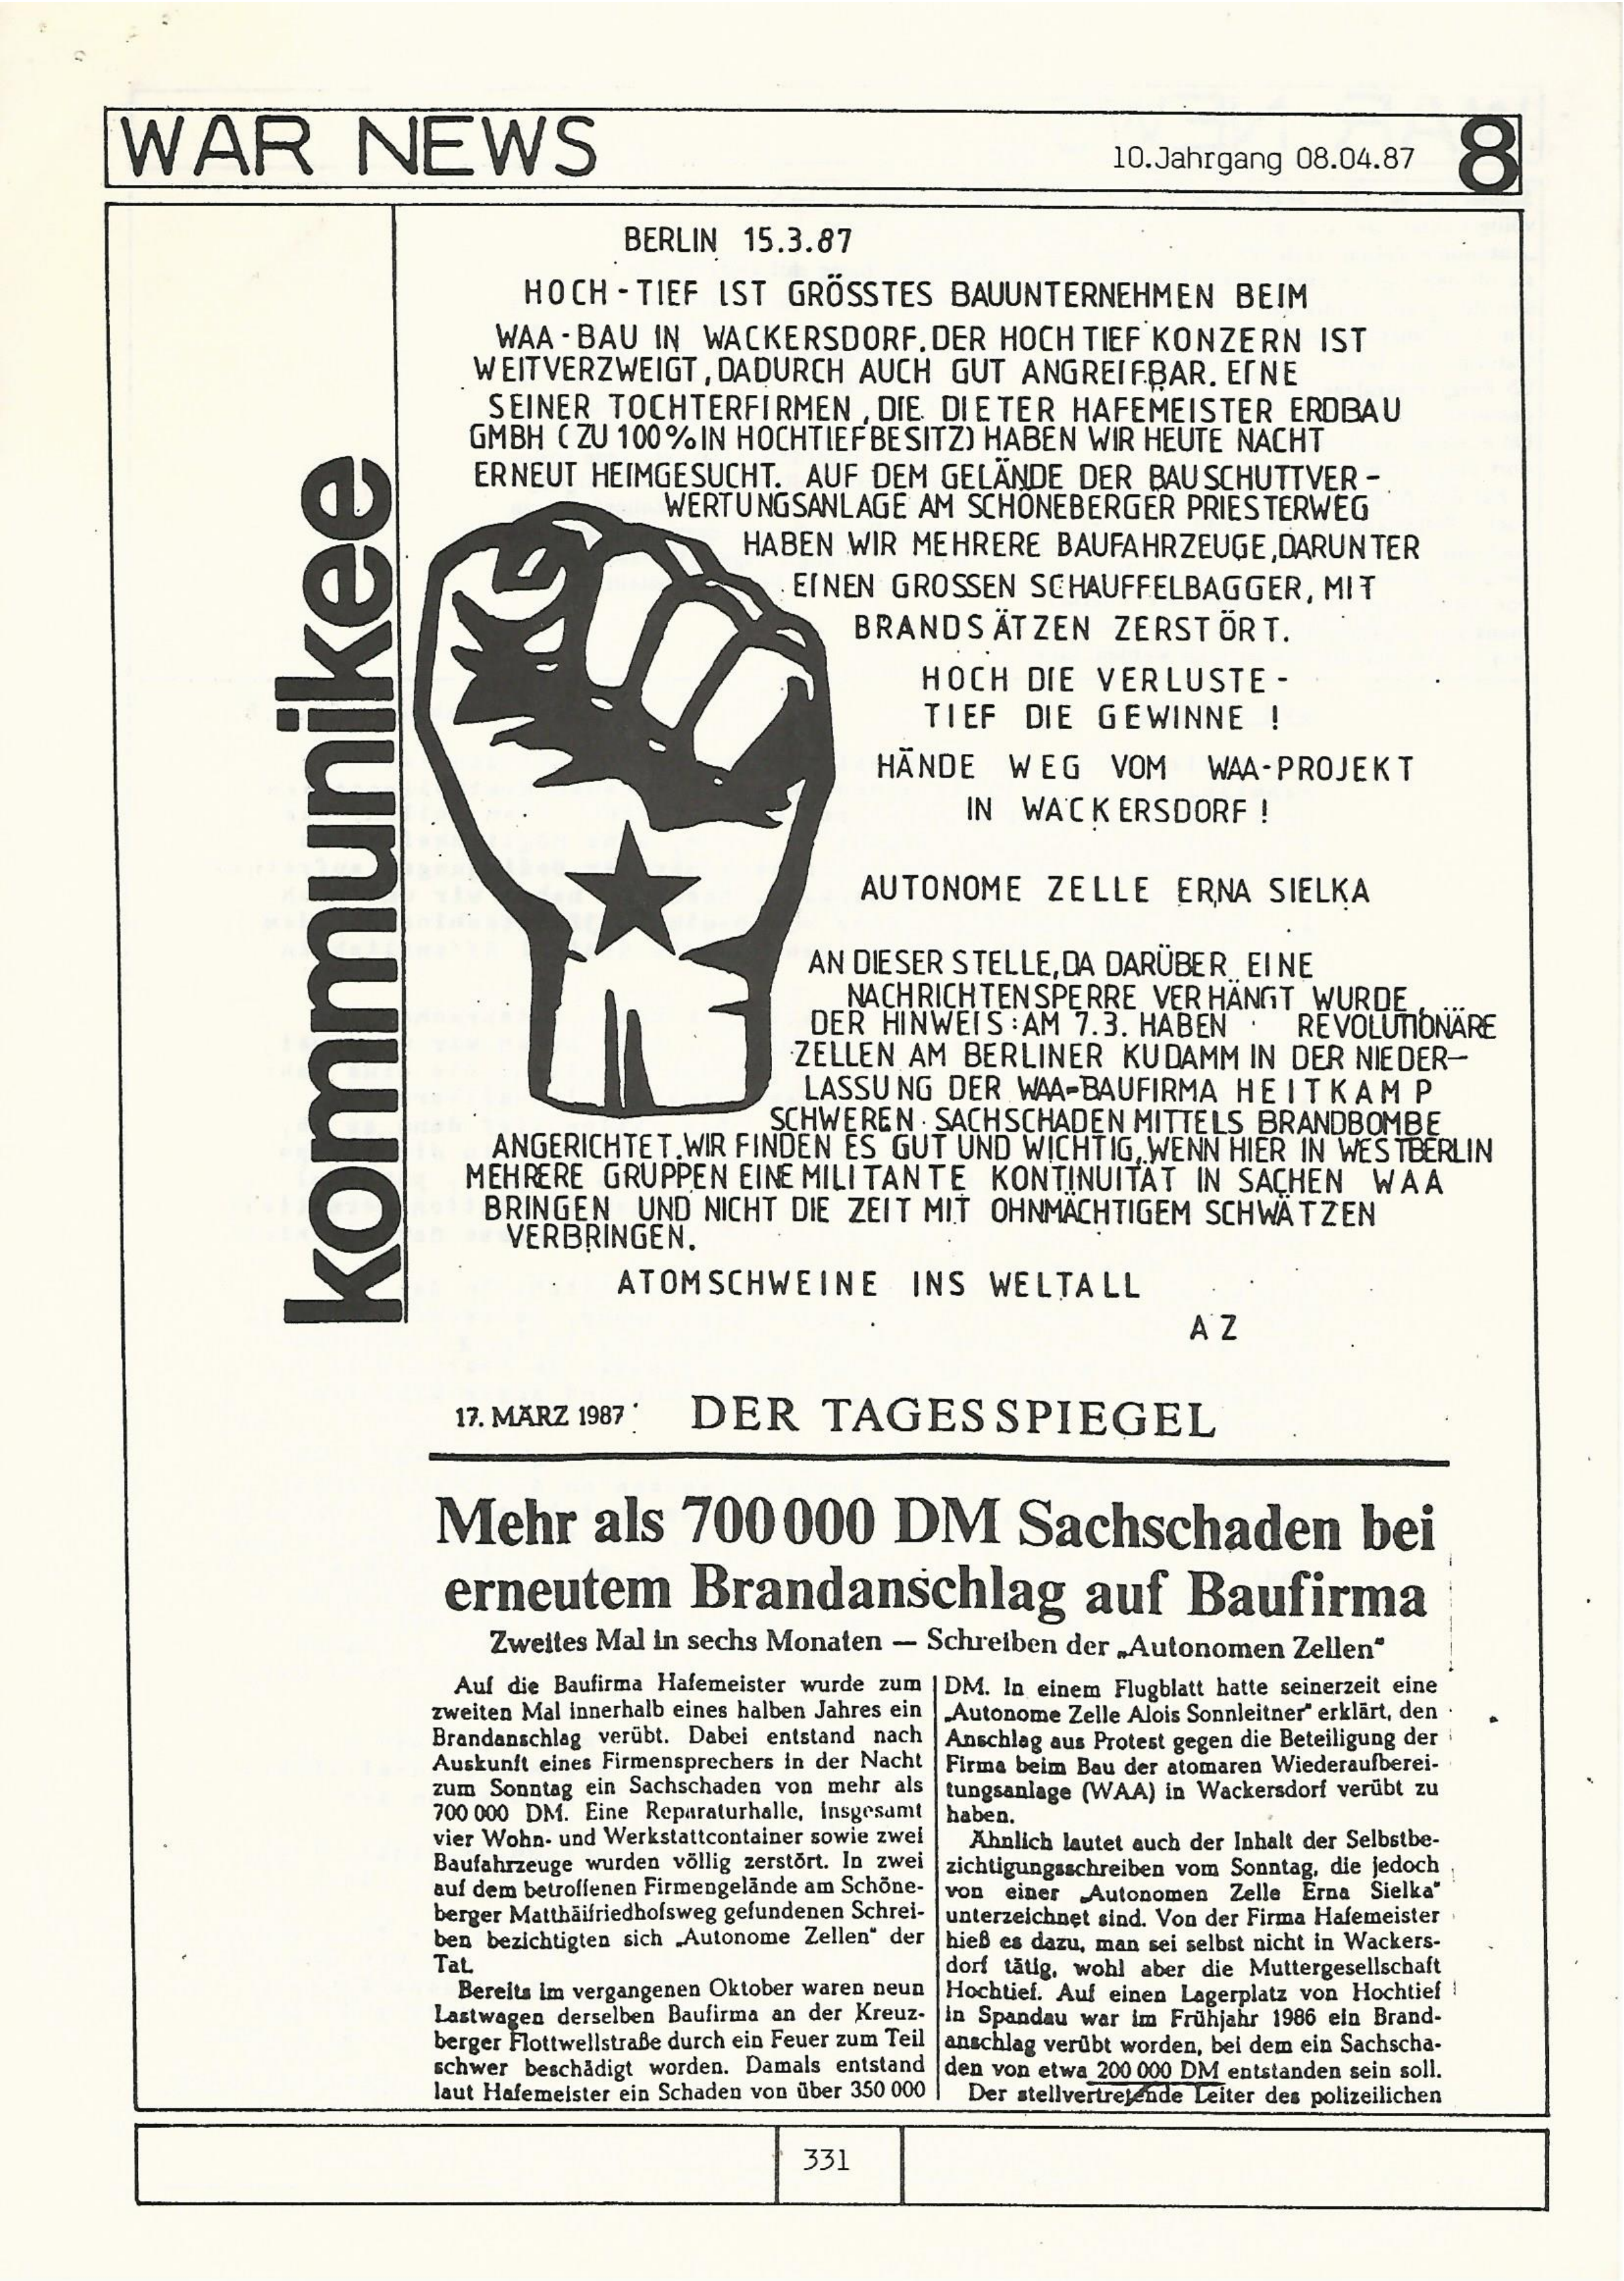 WAR NEWS
10.Jahrgang 08.04.87
8
kommunikee
BERLIN 15.3.87
HOCH-TIEF IST GRÖSSTES BAUUNTERNEHMEN BEIM
WAA-BAU IN WACKERSDORF. DER HOCHTIEF KONZERN IST
WEITVERZWEIGT, DADURCH AUCH GUT ANGREIFBAR. EINE
SEINER TOCHTERFIRMEN, DIE DIETER HAFEMEISTER ERDBAU
GMBH (ZU 100% IN HOCHTIEFBESITZ) HABEN WIR HEUTE NACHT
ERNEUT HEIMGESUCHT. AUF DEM GELÄNDE DER BAUSCHUTTVER-
WERTUNGSANLAGE AM SCHÖNEBERGER PRIESTERWEG
HABEN WIR MEHRERE BAUFAHRZEUGE, DARUNTER
EINEN GROSSEN SCHAUFFELBAGGER, MIT
BRANDSÄTZEN ZERSTÖRT.
HOCH DIE VERLUSTE -
TIEF DIE GEWINNE !
HÄNDE WEG VOM WAA-PROJEKT
IN WACKERSDORF !
AUTONOME ZELLE ERNA SIELKA
AN DIESER STELLE, DA DARÜBER EINE
NACHRICHTENSPERRE VERHÄNGT WURDE,
DER HINWEIS: AM 7.3. HABEN REVOLUTIONÄRE
ZELLEN AM BERLINER KUDAMM IN DER NIEDER-
LASSUNG DER WAA-BAUFIRMA HEITKAMP
SCHWEREN SACHSCHADEN MITTELS BRANDBOMBE
ANGERICHTET. WIR FINDEN ES GUT UND WICHTIG, WENN HIER IN WESTBERLIN
MEHRERE GRUPPEN EINE MILITANTE KONTINUITÄT IN SACHEN WAA
BRINGEN UND NICHT DIE ZEIT MIT OHNMÄCHTIGEM SCHWÄTZEN
VERBRINGEN.
ATOMSCHWEINE INS WELTALL
AZ
17. MÄRZ 1987 DER TAGESSPIEGEL
Mehr als 700 000 DM Sachschaden bei
erneutem Brandanschlag auf Baufirma
Zweites Mal in sechs Monaten — Schreiben der „Autonomen Zellen“
Auf die Baufirma Hafemeister wurde zum
zweiten Mal innerhalb eines halben Jahres ein
Brandanschlag verübt. Dabei entstand nach
Auskunft eines Firmensprechers in der Nacht
zum Sonntag ein Sachschaden von mehr als
700 000 DM. Eine Reparaturhalle, insgesamt
vier Wohn- und Werkstattcontainer sowie zwei
Baufahrzeuge wurden völlig zerstört. In zwei
auf dem betroffenen Firmengelände am Schöne-
berger Matthäifriedhofsweg gefundenen Schrei-
ben bezichtigten sich „Autonome Zellen“ der
Tat.
Bereits im vergangenen Oktober waren neun
Lastwagen derselben Baufirma an der Kreuz-
berger Flottwellstraße durch ein Feuer zum Teil
schwer beschädigt worden. Damals entstand
laut Hafemeister ein Schaden von über 350 000
DM. In einem Flugblatt hatte seinerzeit eine
„Autonome Zelle Alois Sonnleitner“ erklärt, den
Anschlag aus Protest gegen die Beteiligung der
Firma beim Bau der atomaren Wiederaufberei-
tungsanlage (WAA) in Wackersdorf verübt zu
haben.
Ähnlich lautet auch der Inhalt der Selbstbe-
zichtigungsschreiben vom Sonntag, die jedoch
von einer „Autonomen Zelle Erna Sielka“
unterzeichnet sind. Von der Firma Hafemeister
hieß es dazu, man sei selbst nicht in Wackers-
dorf tätig, wohl aber die Muttergesellschaft
Hochtief. Auf einen Lagerplatz von Hochtief
in Spandau war im Frühjahr 1986 ein Brand-
anschlag verübt worden, bei dem ein Sachscha-
den von etwa 200 000 DM entstanden sein soll.
Der stellvertretende Leiter des polizeilichen
331